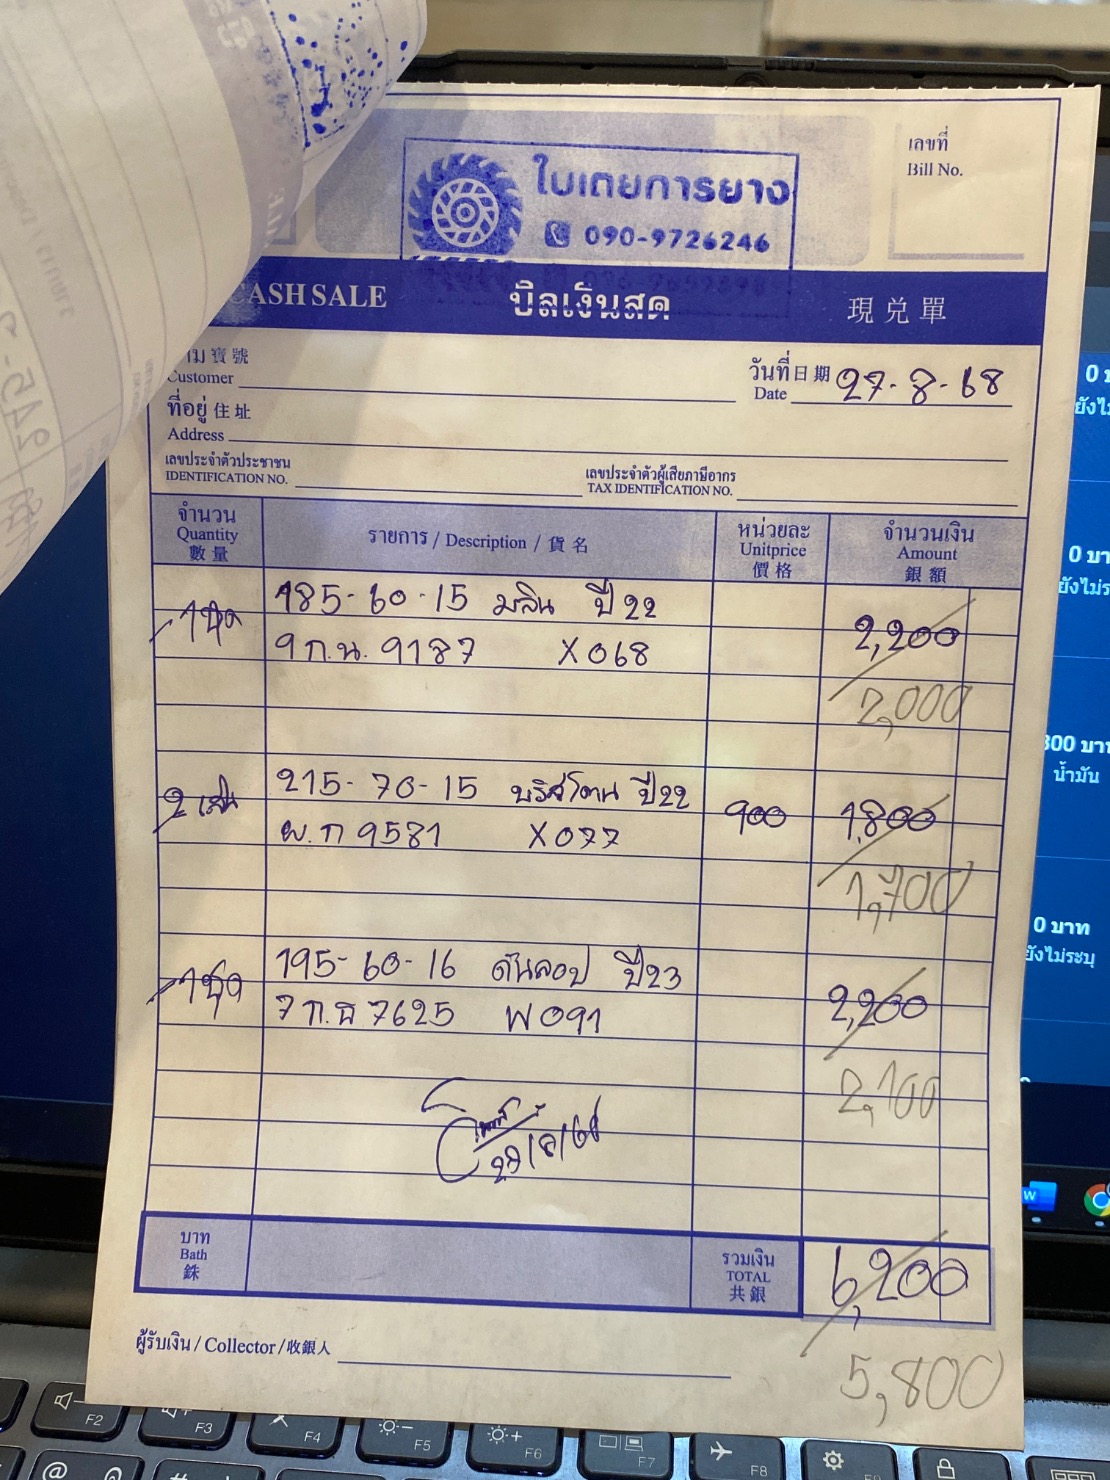 ใบเตยการยาง
090-9726246
เลขที่
Bill No.
CASH SALE บิลเงินสด 現兌單
นาม 寶號
Customer
วันที่ 日期 27-8-68
Date
ที่อยู่ 住址
Address
เลขประจำตัวประชาชน
IDENTIFICATION NO.
เลขประจำตัวผู้เสียภาษีอากร
TAX IDENTIFICATION NO.
จำนวน รายการ / Description / 貨名 หน่วยละ จำนวนเงิน
Quantity Unitprice Amount
數量 價格 銀額
1ชุด 185-60-15 มลิน ปี 22 2,200
9ก.น. 9187 X068
2,000
2 เส้น 215-70-15 บริสโตน ปี22 900 1,800
ผ.ก 9581 X077
1,700
1ชุด 195-60-16 ดันลอป ปี23 2,200
7ก.ธ 7625 W091
2,100
27/8/68
บาท รวมเงิน 6,200
Bath TOTAL
銖 共銀
ผู้รับเงิน / Collector / 收銀人
5,800
0 บ
ยังไม่
0 บา
ยังไม่ระ
300 บาท
น้ำมัน
0 บาท
ยังไม่ระบุ
F2
F3
F4
F5
F6
F7
F8
F9
@
#